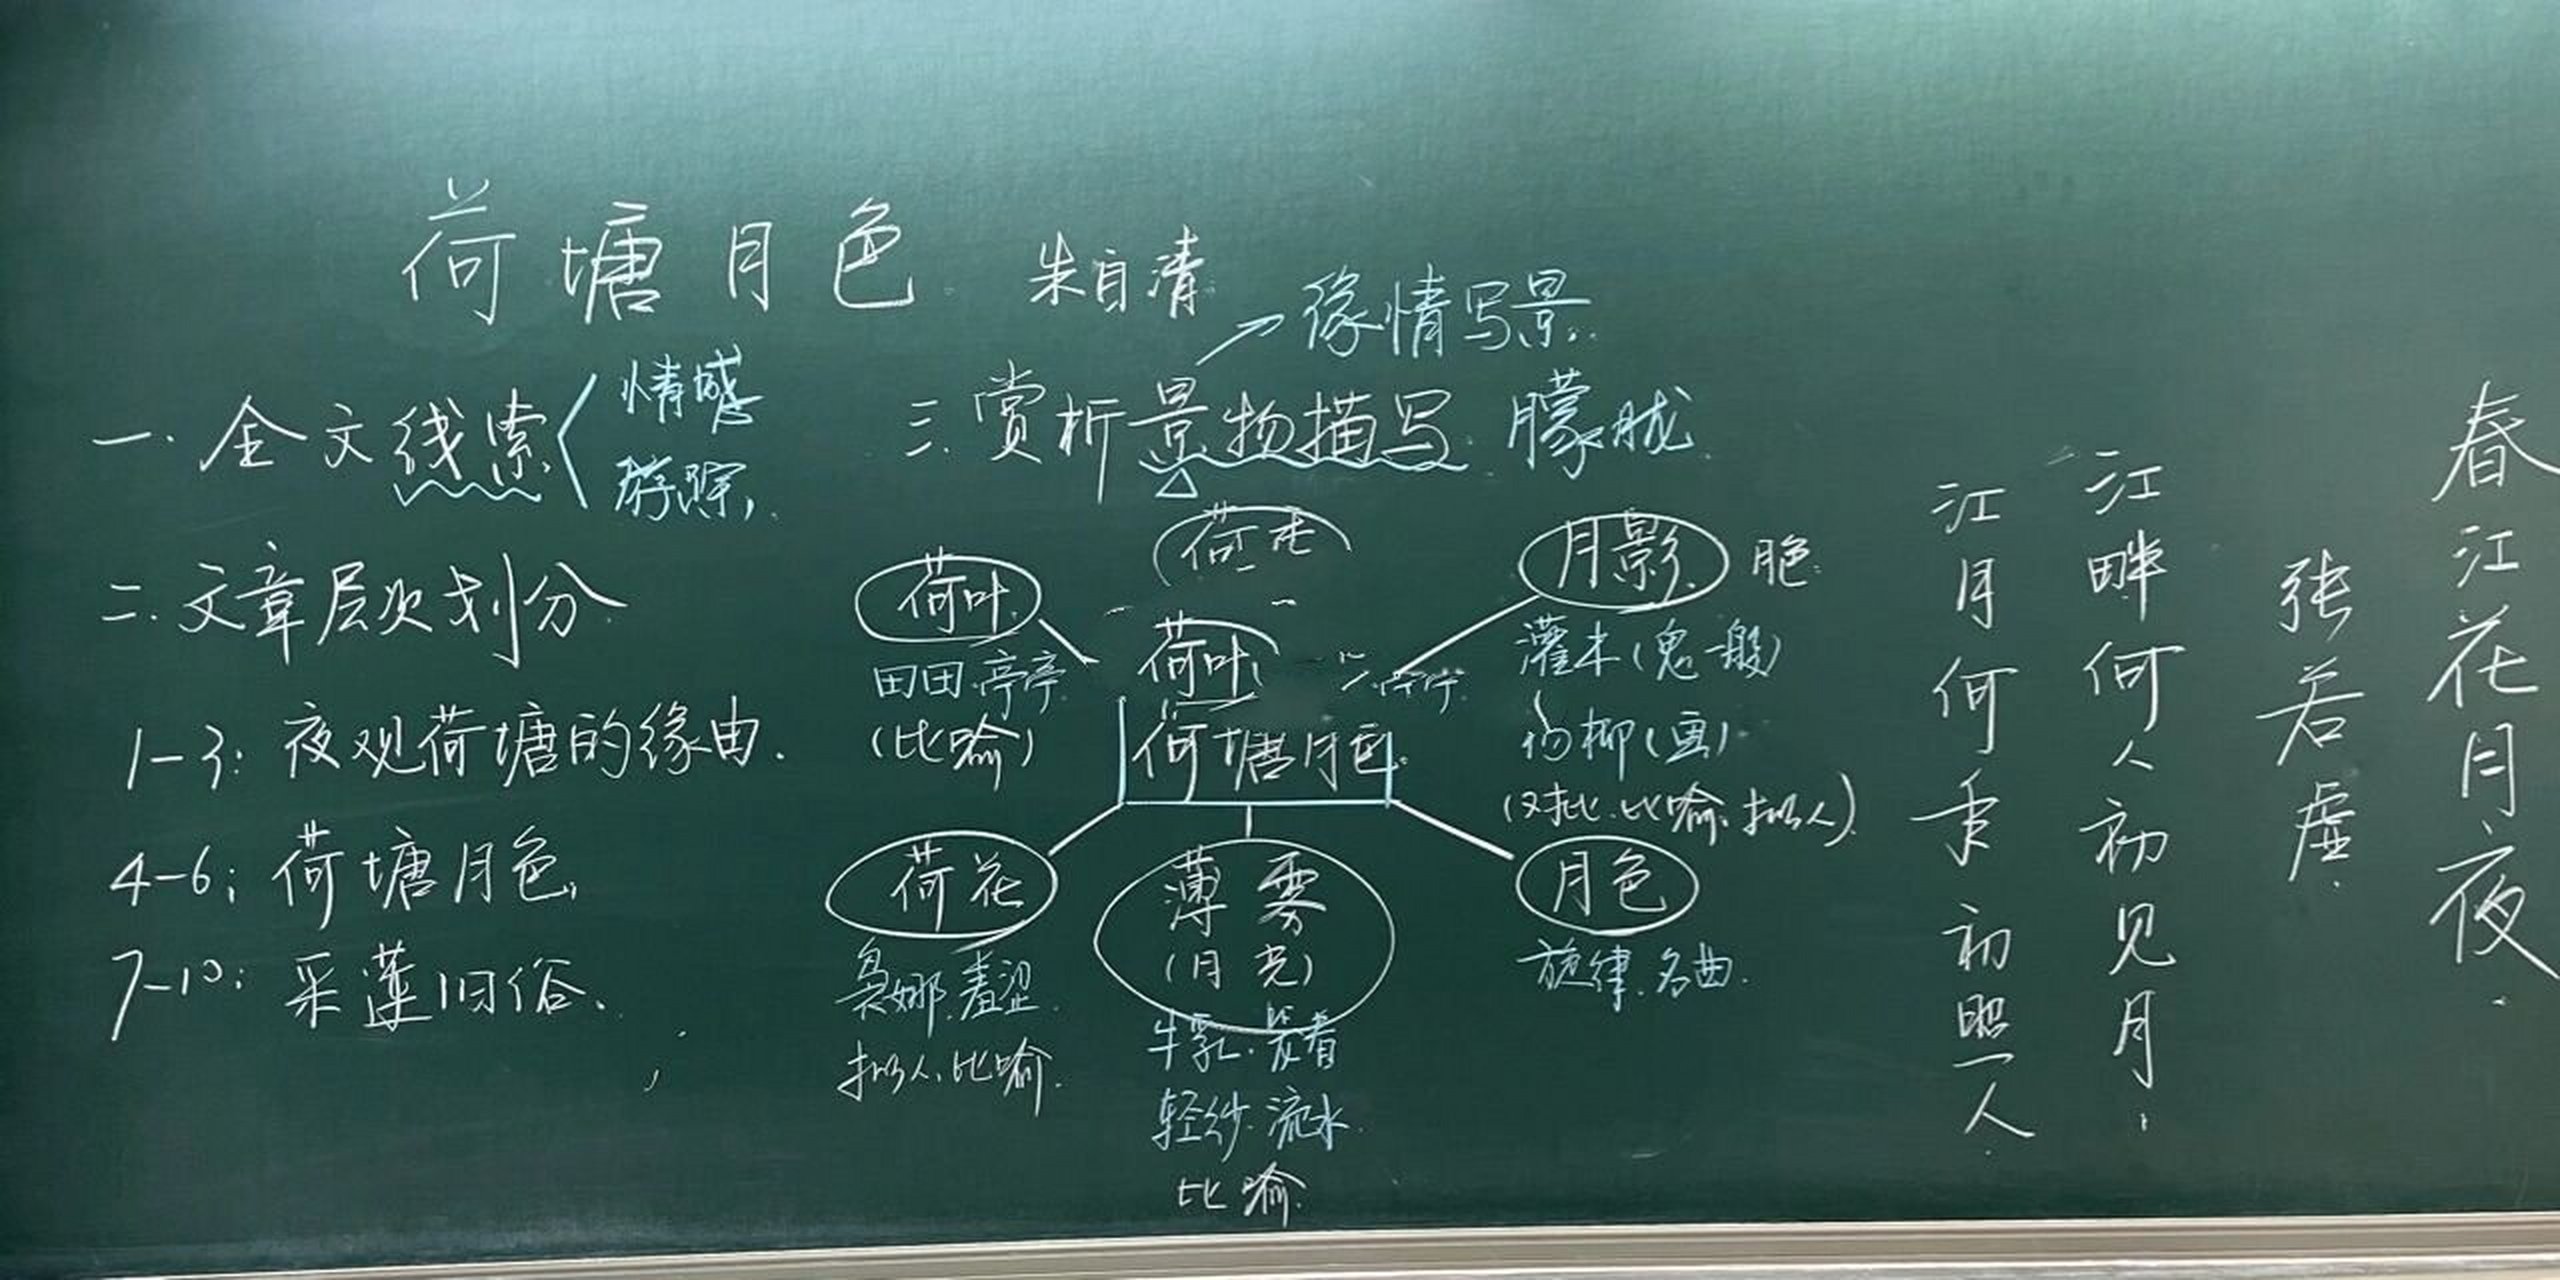 荷塘月色 朱自清
一.全文线索
情感
游踪,
二.文章层次划分
1-3:夜观荷塘的缘由.
4-6:荷塘月色,
7-10:采莲旧俗.
缘情写景.
三.赏析景物描写 朦胧
荷叶
田田.亭亭
(比喻)
荷叶
亭亭
荷塘月色.
月影
灌木(鬼一般)
杨柳(画)
(对比.比喻.拟人)
荷花
袅娜.羞涩.
拟人.比喻.
薄雾
(月光)
牛乳.笼着
轻纱.流水
比喻.
月色
旋律.名曲.
春江花月夜.
张若虚.
江畔何人初见月.
江月何年初照人.